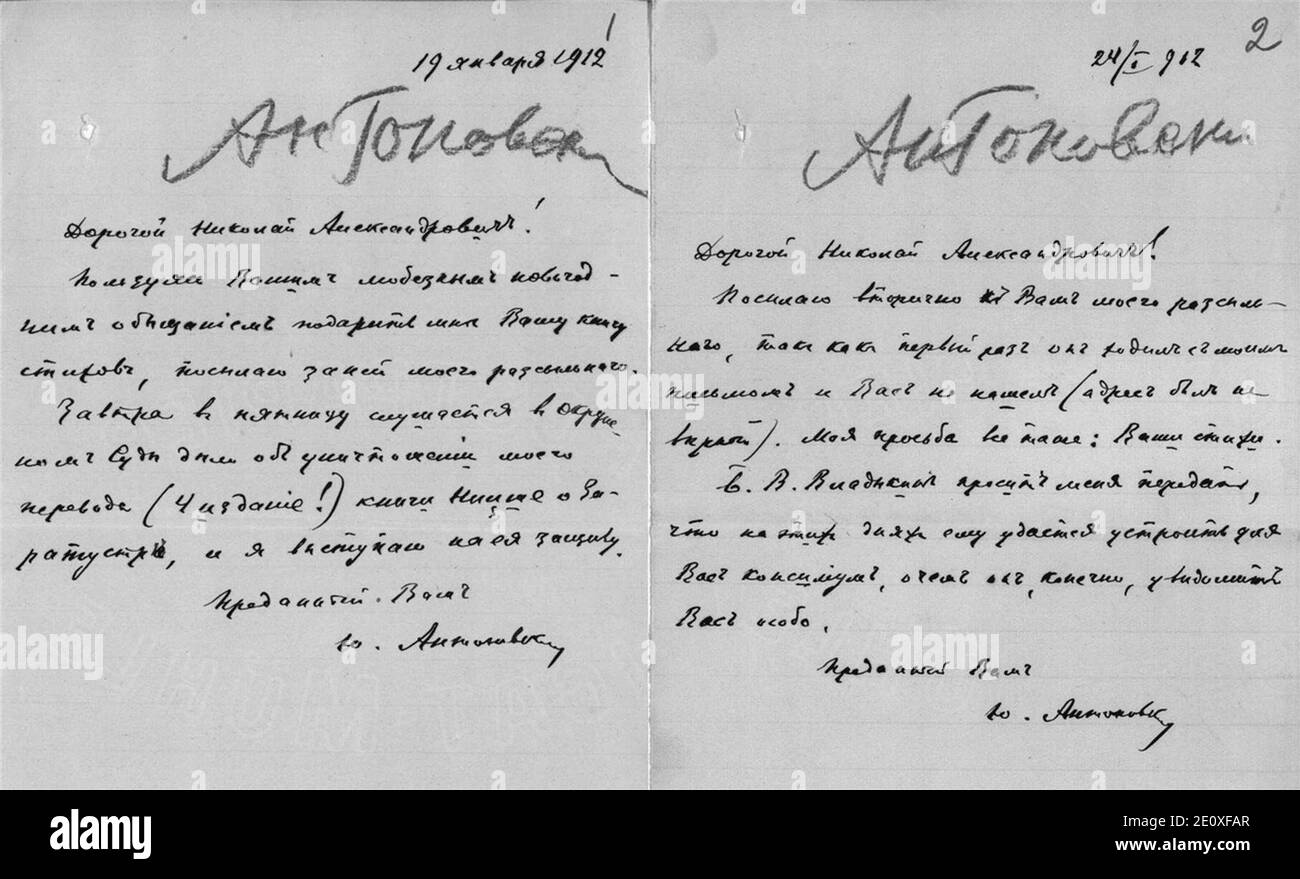 1
19 января 1912
Антоновск
Дорогой Николай Александровичъ!
Пользуясь Вашимъ любезнымъ новогод-
нимъ обѣщаніемъ подарить мнѣ Вашу книгу
стиховъ, посылаю за ней моего разсыльнаго.
Завтра въ пятницу слушается въ Окруж-
номъ Судѣ дѣло объ уничтоженіи моего
перевода (4 изданіе!) книги Ницше о За-
ратустрѣ, и я выступаю на ея защиту.
Преданный Вамъ
Ю. Антоновск
2
24/I 912
Антоновски
Дорогой Николай Александровичъ!
Посылаю вторично къ Вамъ моего разсыль-
наго, такъ какъ первый разъ онъ ходилъ съ моимъ
письмомъ и Васъ не нашелъ (адресъ былъ не
вѣрный). Моя просьба все таже: Ваши стихи.
Б. В. Владыкинъ проситъ меня передать,
что на этихъ дняхъ ему удастся устроить для
Васъ консиліумъ, о чемъ онъ, конечно, увѣдомитъ
Васъ особо.
Преданный Вамъ
Ю. Антоновск
alamy
alamy
Image ID: 2E0XFAR
www.alamy.com